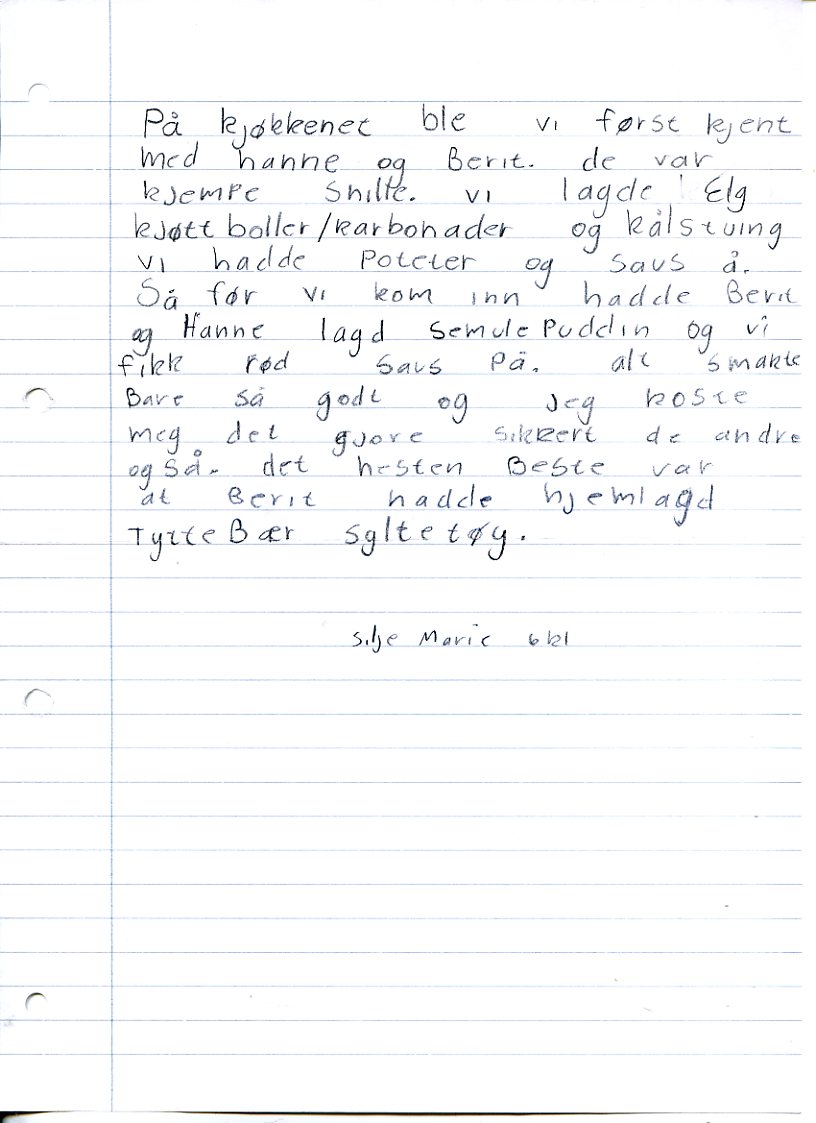 På kjøkkenet ble vi først kjent
med hanne og Berit. de var
kjempe Snille. vi lagde Elg
kjøtt boller/karbonader og kålstuing
vi hadde Poteter og Saus å.
Så før vi kom inn hadde Berit
og Hanne lagd SemulePuddin og vi
fikk rød Saus På. alt smakte
Bare så godt og jeg koste
meg det gjore sikkert de andre
også. det hesten Beste var
at Berit hadde hjemlagd
TytteBær Syltetøy.
Silje Marie 6 kl